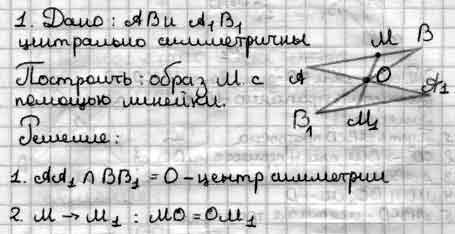 1. Дано: AB и A₁B₁
центрально симметричны
Построить: образ M с
помощью линейки.
Решение:
1. AA₁ ∩ BB₁ = O - центр симметрии
2. M → M₁ : MO = OM₁
M
B
A
O
A₁
B₁
M₁